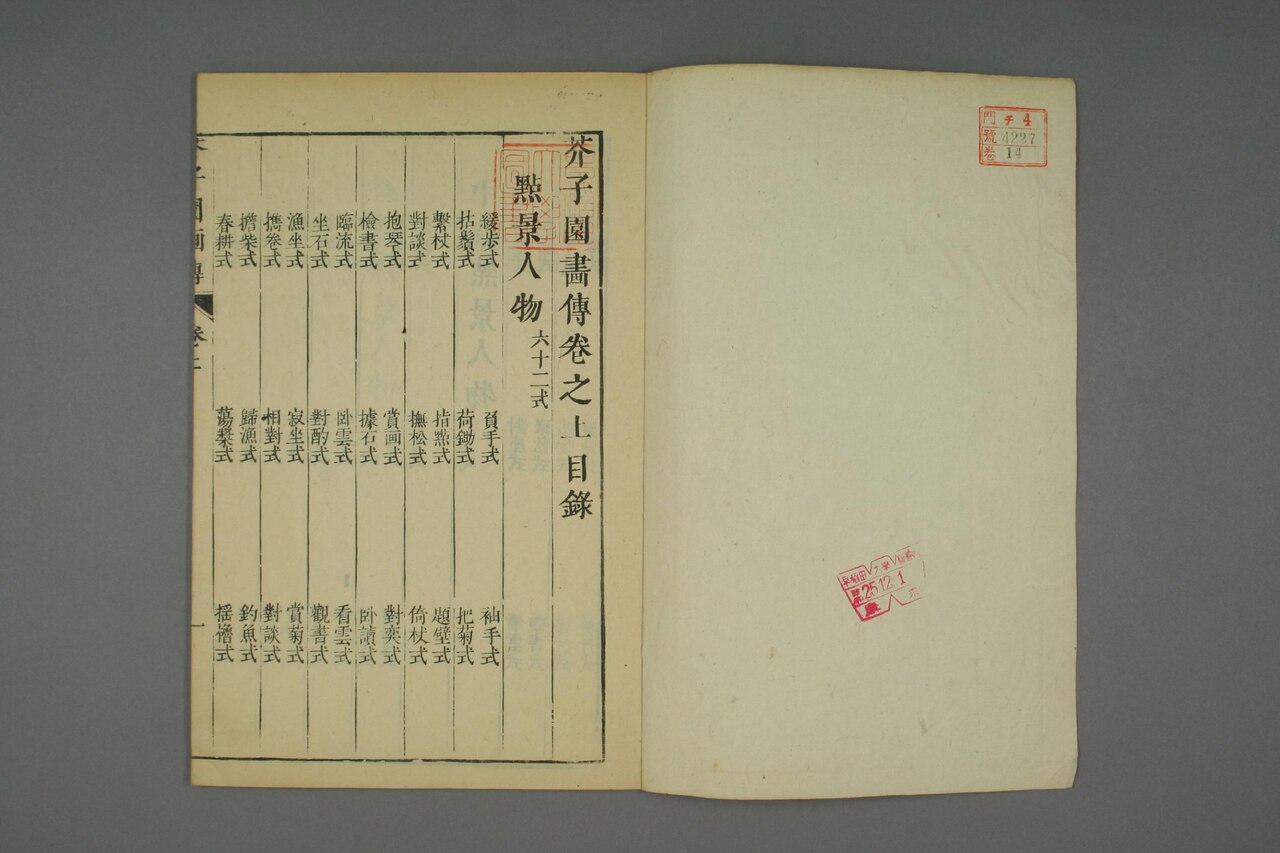 門 チ4
號 4227
卷 14
早稲田大學
25.12.1
芥子園畵傳卷之上目錄
點景人物 六十二式
緩歩式 負手式 袖手式
拈鬚式 荷鋤式 把菊式
繫杖式 指點式 題壁式
對談式 撫松式 倚杖式
抱琴式 賞画式 對奕式
檢書式 據石式 卧讀式
臨流式 卧雲式 看雲式
坐石式 對酌式 觀書式
漁坐式 寂坐式 賞菊式
攜卷式 相對式 對談式
擔柴式 歸漁式 釣魚式
春耕式 蕩槳式 摇櫓式
芥子園画傳 卷上 一